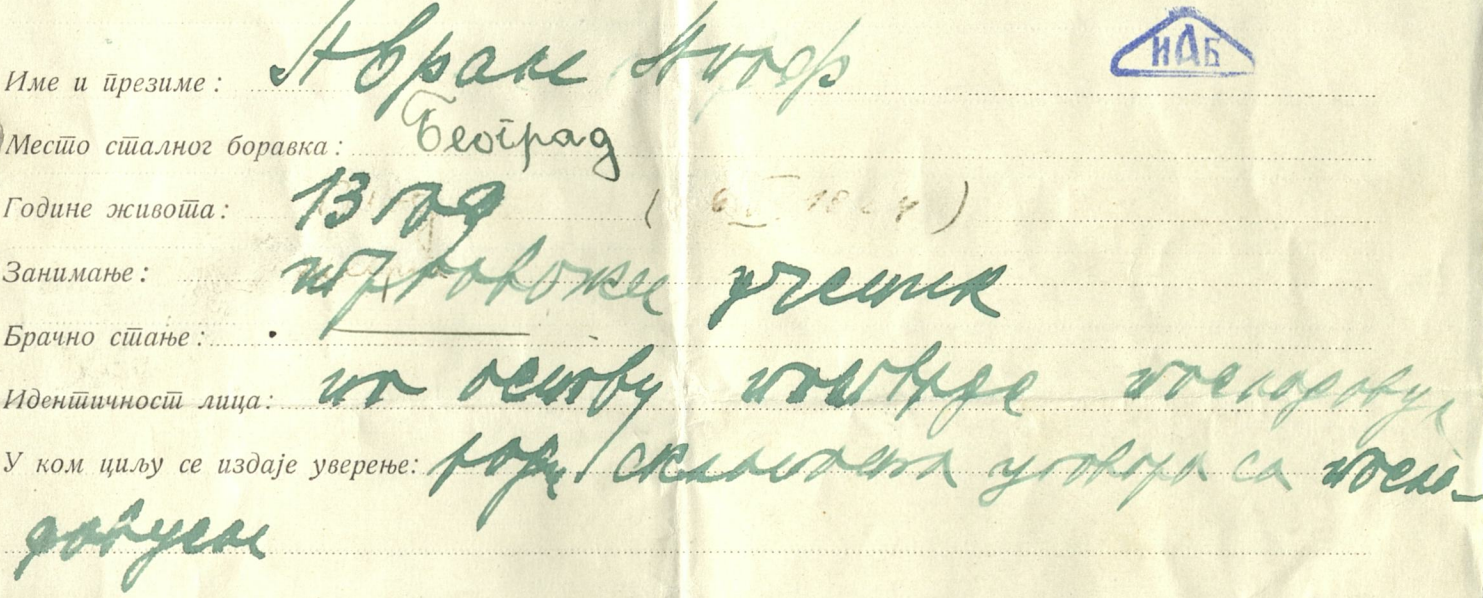 Име и презиме: Аврам
ИАБ
Место сталног боравка: Београд
Године живота: 13 год
Занимање: трговачки ученик
Брачно стање:
Идентичност лица: на основу потврде послодавца
У ком циљу се издаје уверење: ради склапања уговора са посло-
давцем